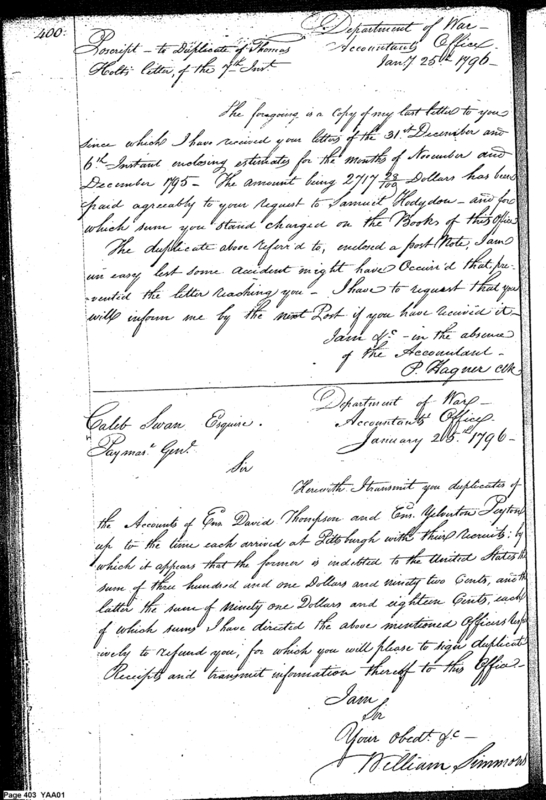 400.
Department of War –
Accountants Office.
Jany 25th 1796 –
Poscript – to Duplicate of Thomas
Holts letter, of the 7th Inst.
The foregoing is a copy of my last letter to you
since which I have received your letters of the 31st December and
6th Instant enclosing estimates for the months of November and
December 1795 – The amount being 2717 23/100 Dollars has been
paid agreeably to your request to Samuel Hodgdon – and for
which sum you stand charged on the Books of this Office
The duplicate above referr'd to, enclosed a post Note, I am
un easy lest some accident might have Occurr'd that pre-
vented the letter reaching you – I have to request that you
will inform me by the next Post if you have received it –
I am &c – in the absence
of the Accountant –
P. Hagner Clk.
Department of War –
Accountants Office
January 25th 1796 –
Caleb Swan Esquire.
Paymasr Genl.
Sir
Herewith I transmit you duplicates of
the Accounts of Ens. David Thompson and Ens. Yelverton Peyton
up to the time each arrived at Pittsburgh with their recruits; by
which it appears that the former is indebted to the United States the
sum of three hundred and one Dollars and ninety two Cents, and the
latter the sum of Ninety one Dollars and eighteen Cents, each
of which sums I have directed the above mentioned Officers resp
ively to refund you; for which you will please to sign duplicate
Receipts and transmit information thereof to this Office –
I am
Sir
Your Obedt. &c –
William Simmons
Page 403 YAA01